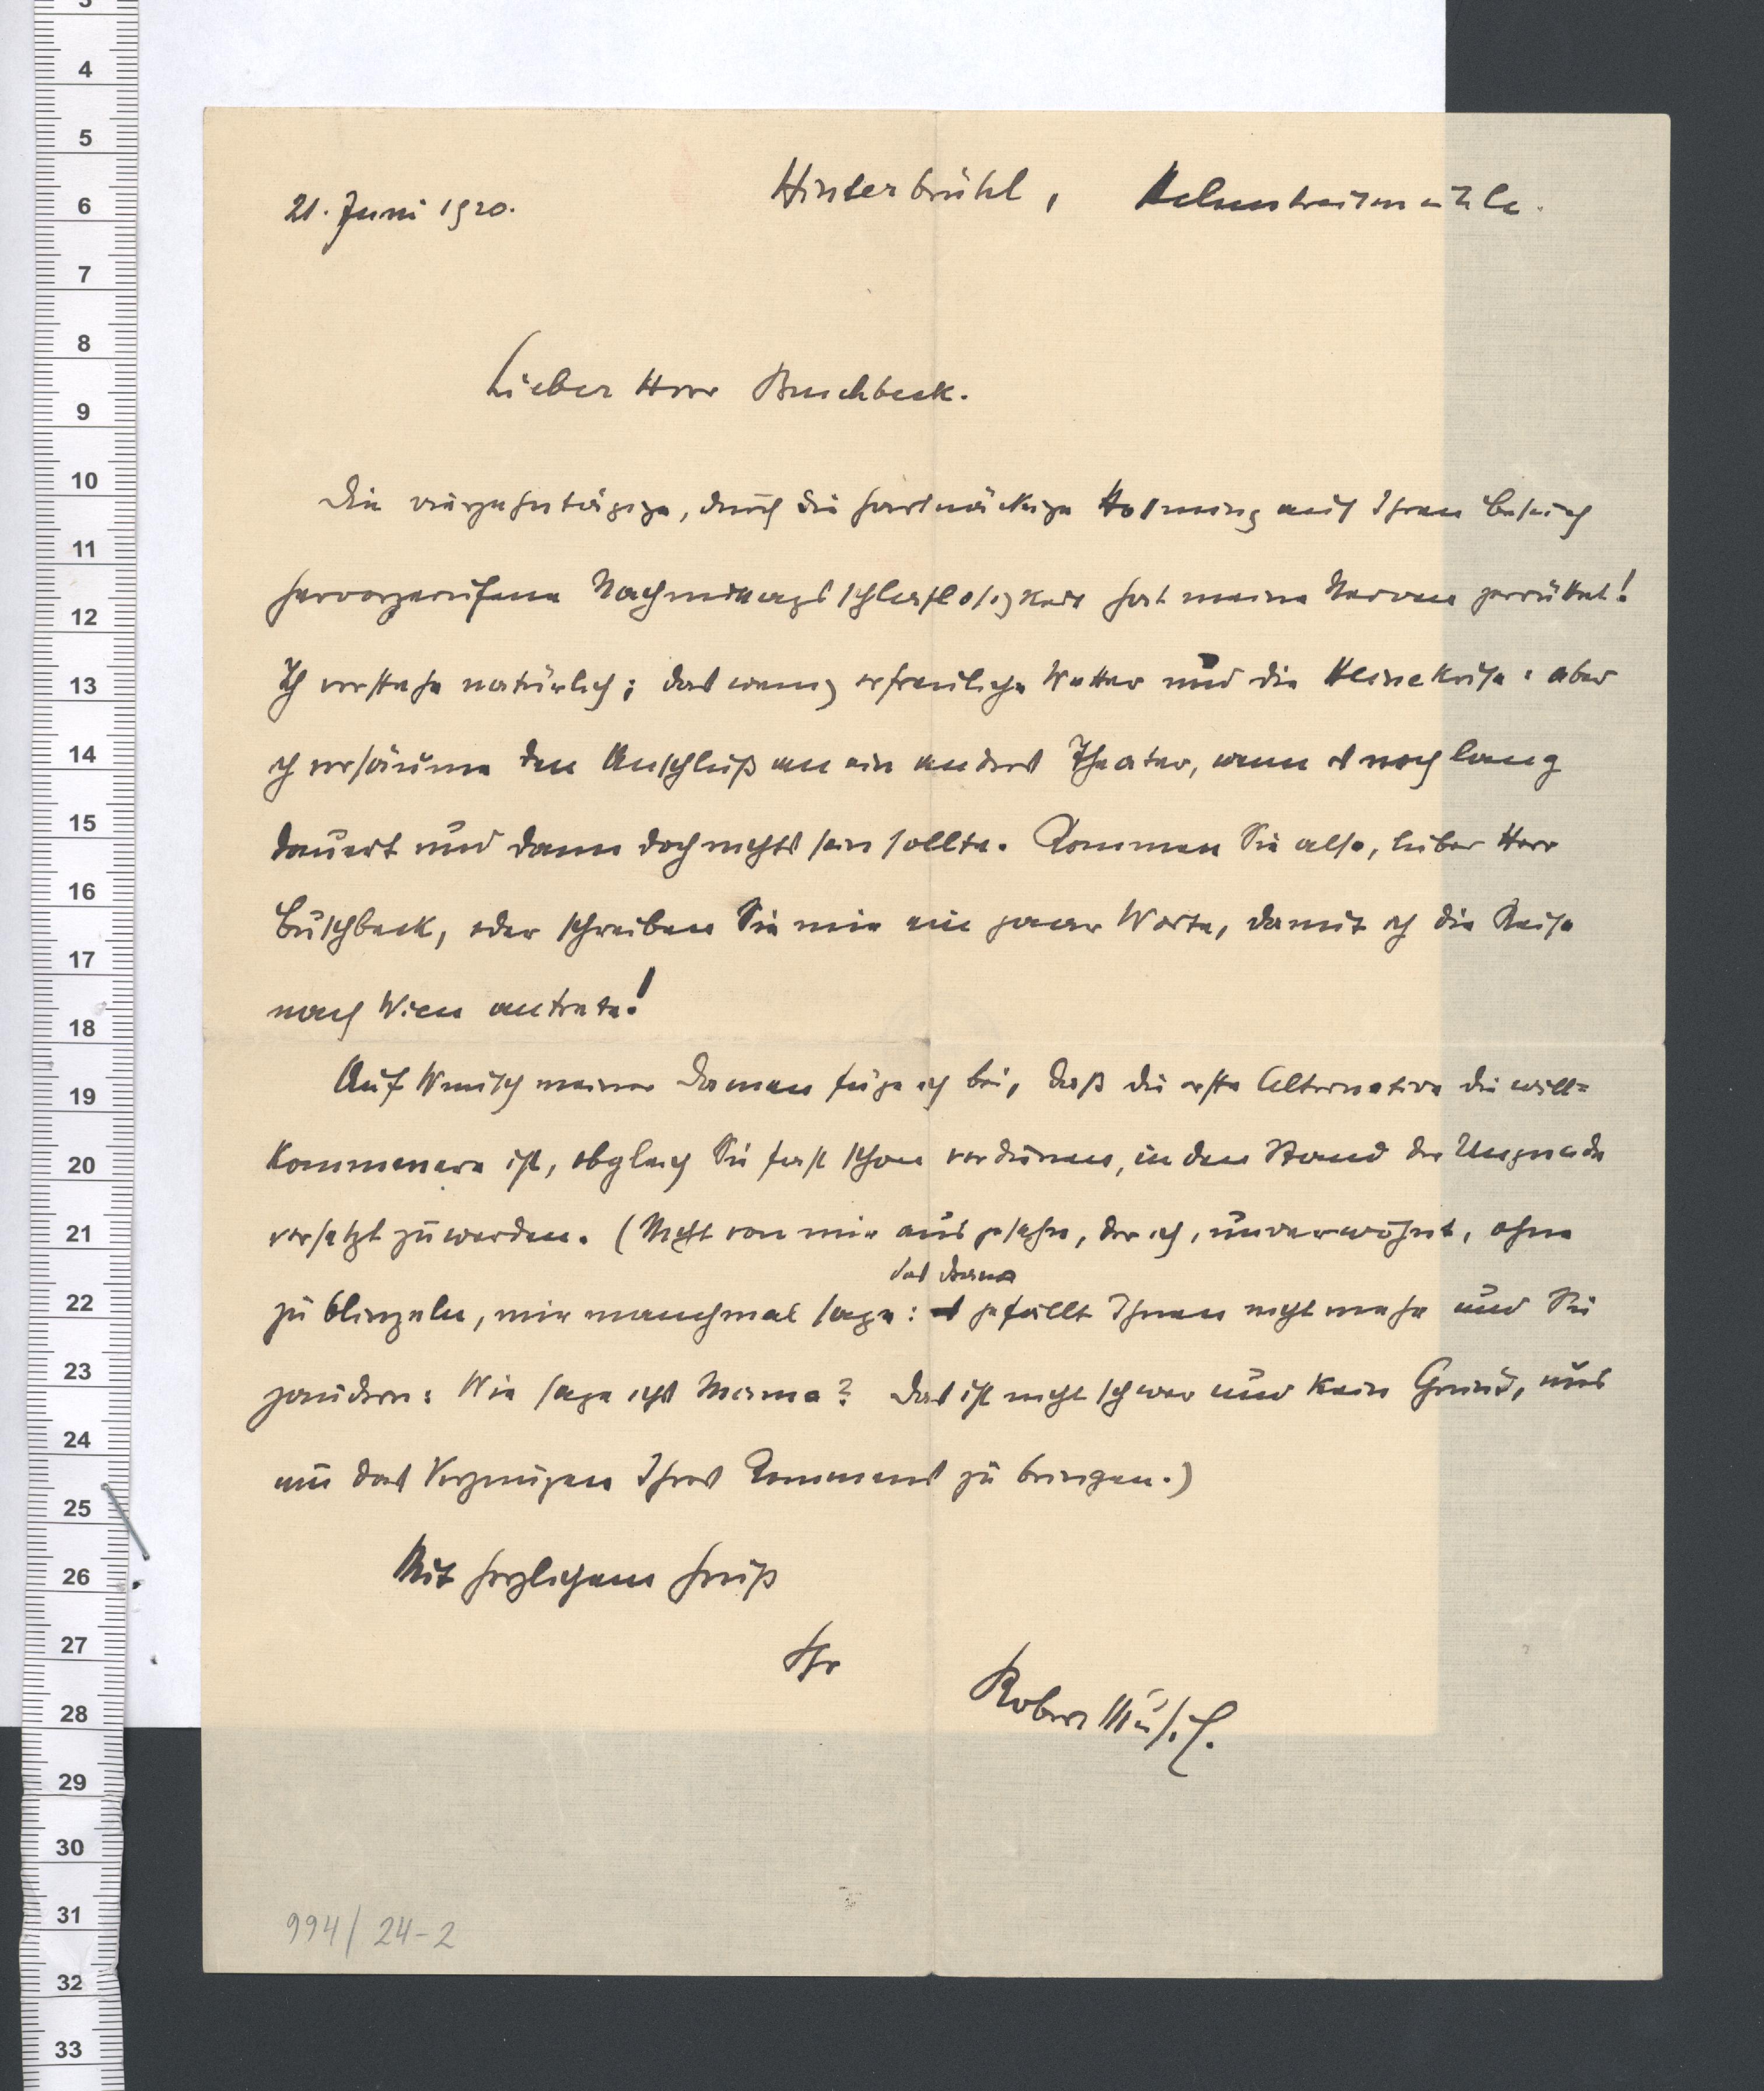 21. Juni 1920.
Hinterbrühl, Helmstreitmühle.
Lieber Herr Buschbeck.
Die vierzehntägige, durch die hartnäckige Hoffnung auf Ihren Besuch
hervorgerufene Nachmittagsschlaflosigkeit hat meine Nerven zerrüttet!
Ich verstehe natürlich; das wenig erfreuliche Wetter und die kleine Krise: aber
ich versäume den Anschluß an ein andres Theater, wenn es noch lang
dauert und dann doch nichts sein sollte. Kommen Sie also, lieber Herr
Buschbeck, oder schreiben Sie mir ein paar Worte, damit ich die Reise
nach Wien antrete!
Auf Wunsch meiner Damen füge ich bei, daß die erste Alternative die will=
kommenere ist, obgleich Sie fast schon verdienen, in den Stand der Ungnade
versetzt zu werden. (Nicht von mir aus gesehn, der ich, unverwöhnt, ohne
das Drama
zu blinzeln, mir manchmal sage: gefällt Ihnen nicht mehr und Sie
zaudern: Wie sage ichs Mama? Das ist nicht schwer und kein Grund, uns
um das Vergnügen Ihres Kommens zu bringen.)
Mit herzlichem Gruß
Ihr
Robert Musil.
994/24-2
3
4
5
6
7
8
9
10
11
12
13
14
15
16
17
18
19
20
21
22
23
24
25
26
27
28
29
30
31
32
33